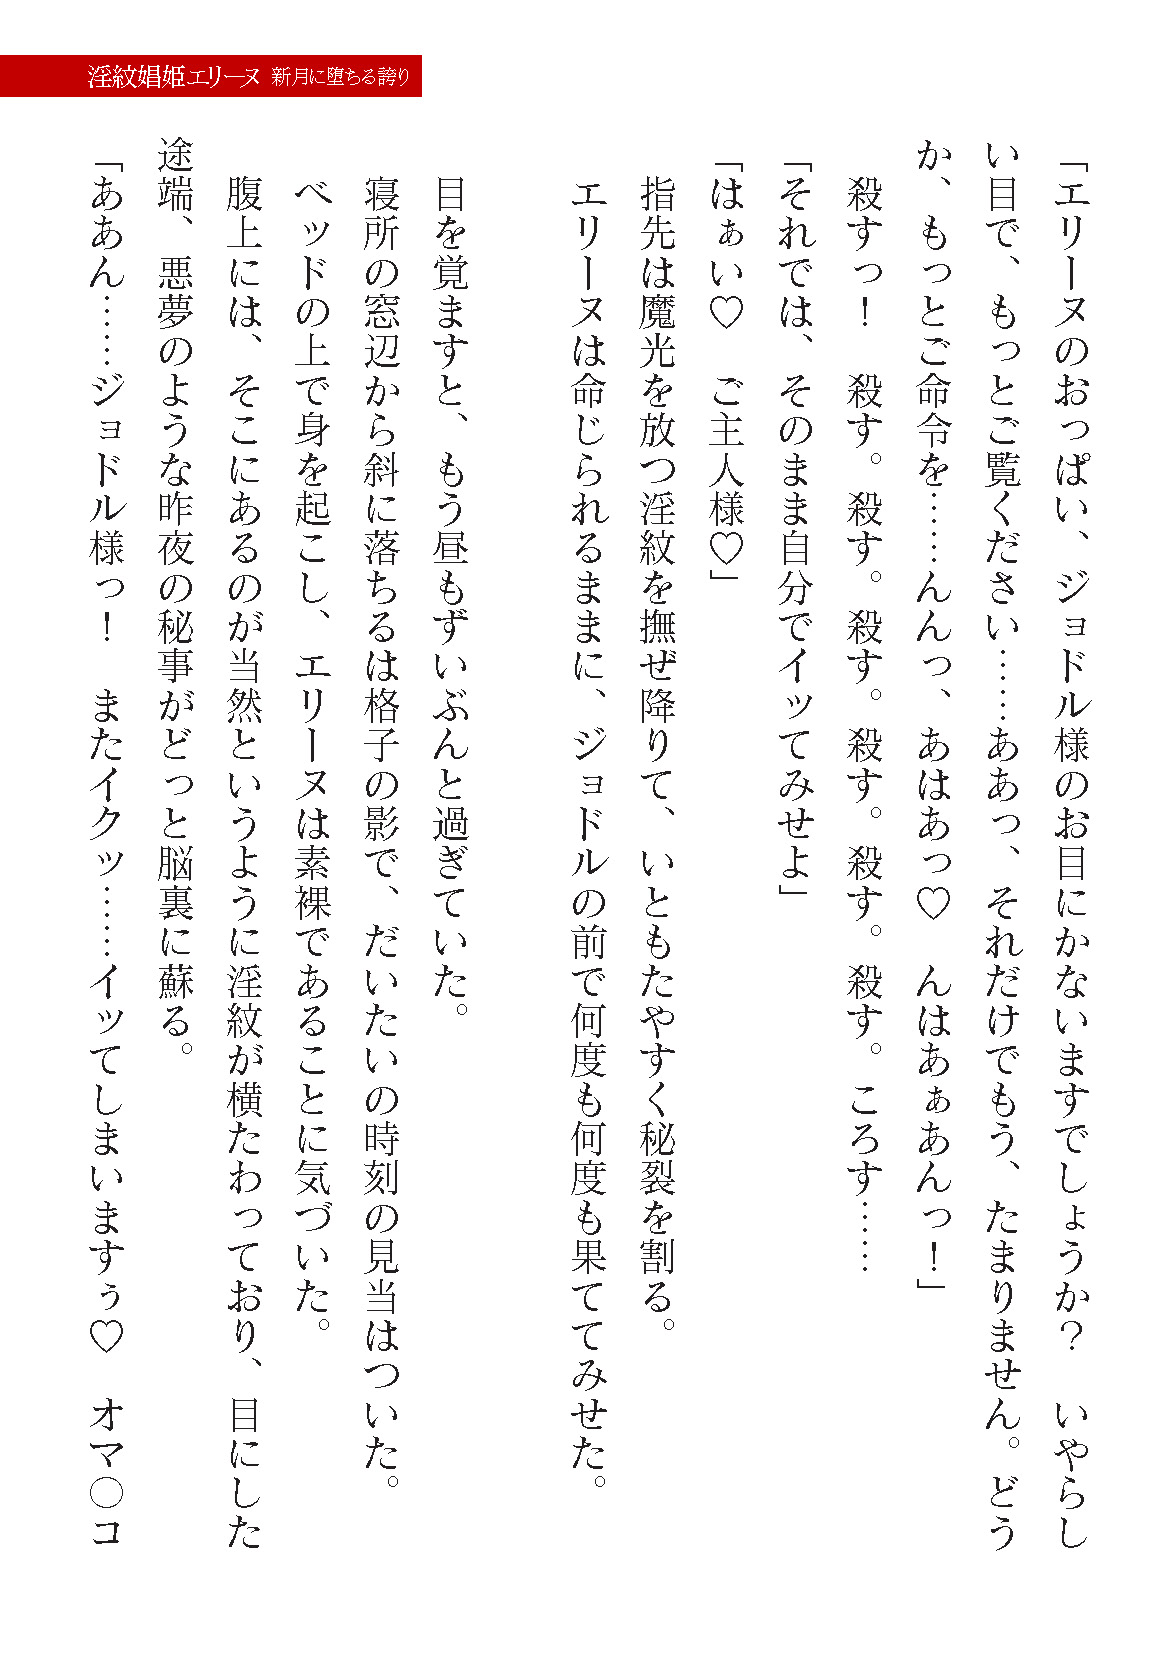 淫紋娼姫エリーヌ 新月に堕ちる誇り
「エリーヌのおっぱい、ジョドル様のお目にかないますでしょうか？　いやらし
い目で、もっとご覧ください……ああっ、それだけでもう、たまりません。どう
か、もっとご命令を……んんっ、あはあっ♡　んはあぁあんっ！」
　殺すっ！　殺す。殺す。殺す。殺す。殺す。殺す。ころす……
「それでは、そのまま自分でイッてみせよ」
「はぁい♡　ご主人様♡」
　指先は魔光を放つ淫紋を撫ぜ降りて、いともたやすく秘裂を割る。
　エリーヌは命じられるままに、ジョドルの前で何度も何度も果ててみせた。
　目を覚ますと、もう昼もずいぶんと過ぎていた。
　寝所の窓辺から斜に落ちるは格子の影で、だいたいの時刻の見当はついた。
　ベッドの上で身を起こし、エリーヌは素裸であることに気づいた。
　腹上には、そこにあるのが当然というように淫紋が横たわっており、目にした
途端、悪夢のような昨夜の秘事がどっと脳裏に蘇る。
「ああん……ジョドル様っ！　またイクッ……イッてしまいますぅ♡　オマ◯コ